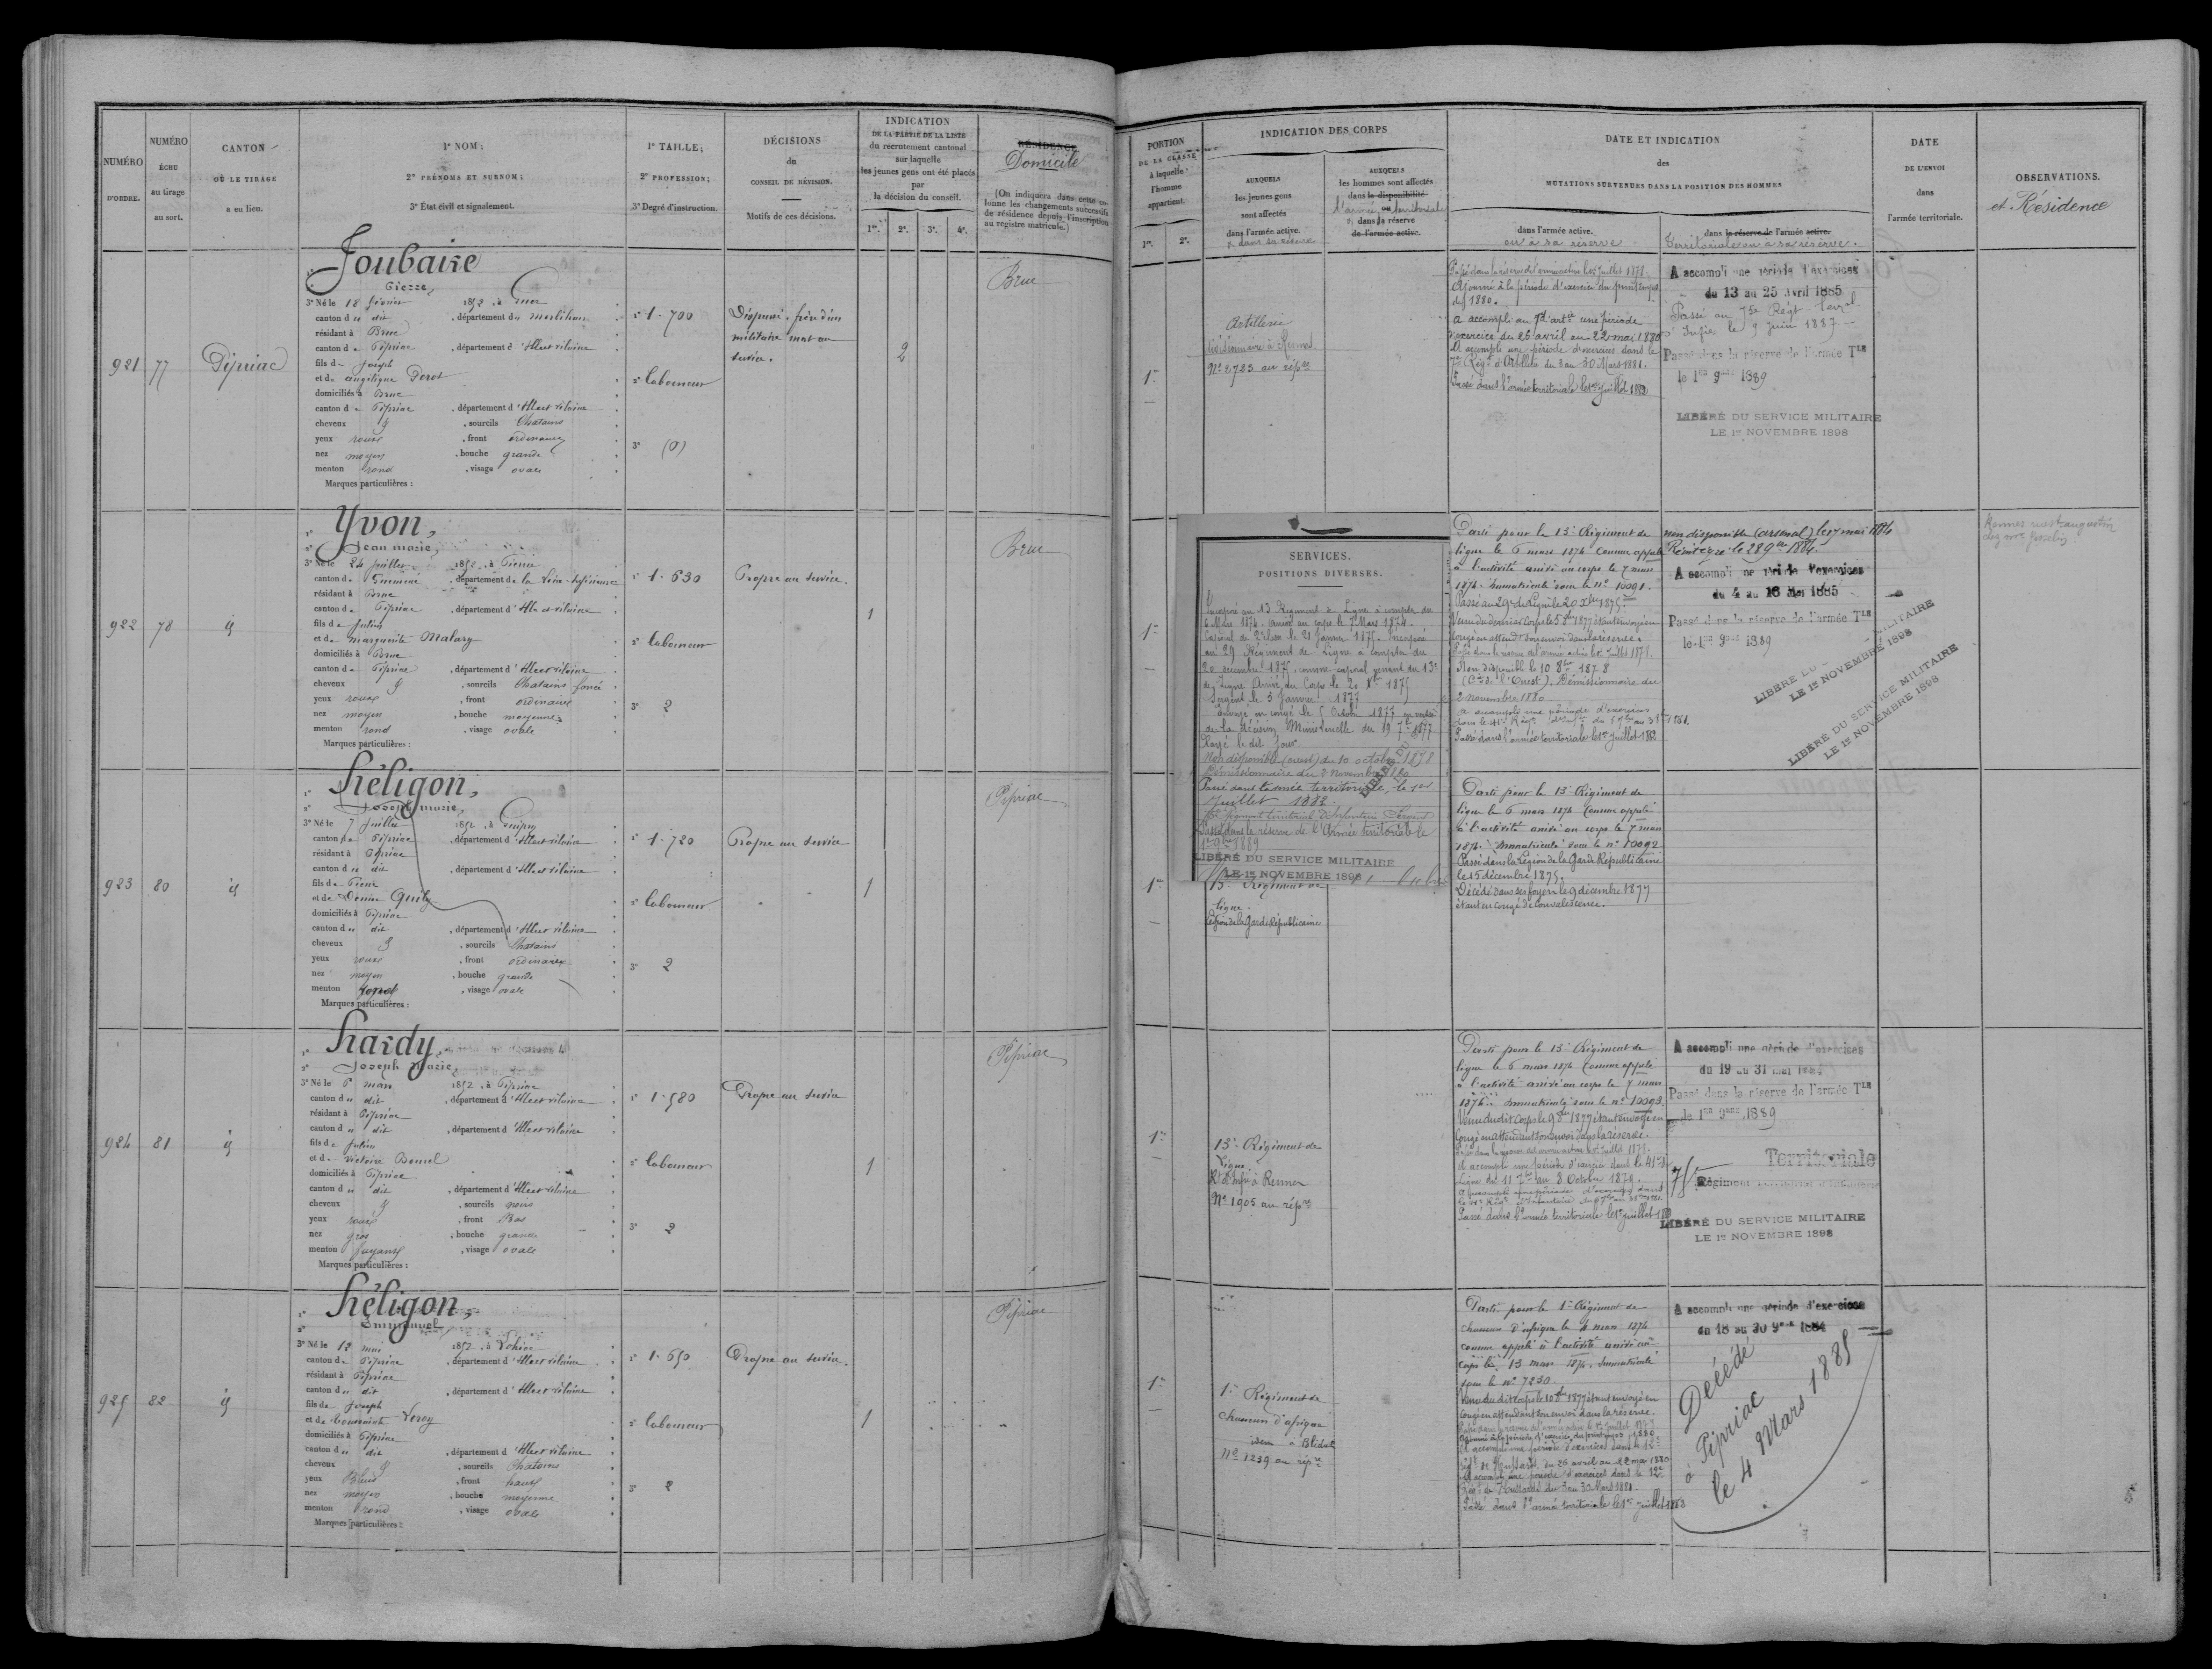 NUMÉRO
D'ORDRE.
NUMÉRO
ÉCHU
au tirage
au sort.
CANTON
OÙ LE TIRAGE
a eu lieu.
1° NOM ;
2° PRÉNOMS ET SURNOM ;
3° État civil et signalement.
1° TAILLE ;
2° PROFESSION ;
3° Degré d'instruction.
DÉCISIONS
du
CONSEIL DE RÉVISION.
Motifs de ces décisions.
INDICATION
DE LA PARTIE DE LA LISTE
du recrutement cantonal
sur laquelle
les jeunes gens ont été placés
par
la décision du conseil.
1re. 2e. 3e. 4e.
RÉSIDENCE
Domicile
(On indiquera dans cette co-
lonne les changements successifs
de résidence depuis l'inscription
au registre matricule.)
921
77
Pipriac
Joubaire
Pierre,
3° Né le 18 février 1852, à
canton du dit, département du Morbihan
résidant à Bruc
canton de Pipriac, département d'Ille et Vilaine
fils de Joseph
et de Angélique
domiciliés à Bruc
canton de Pipriac, département d'Ille et Vilaine
cheveux, sourcils Chatains
yeux roux, front ordinaire
nez moyen, bouche grande
menton rond, visage ovale
Marques particulières :
1° 1.700
2° Laboureur
3° (0)
Dispensé, frère d'un
militaire mort au
service.
2
Bruc
922
78
id
Yvon,
Jean Marie,
3° Né le 24 juillet 1852, à Pierric
canton de Guémené, département de la Loire-Inférieure
résidant à Bruc
canton de Pipriac, département d'Ille et Vilaine
fils de Julien
et de Marguerite
domiciliés à Bruc
canton de Pipriac, département d'Ille et Vilaine
cheveux, sourcils Chatains foncé
yeux roux, front ordinaire
nez moyen, bouche moyenne
menton rond, visage ovale
Marques particulières :
1° 1.630
2° Laboureur
3° 2
Propre au service.
1
Bruc
923
80
id
Héligon,
Joseph Marie,
3° Né le 7 juillet 1852, à Guipry
canton de Pipriac, département d'Ille et Vilaine
résidant à Pipriac
canton du dit, département d'Ille et Vilaine
fils de Pierre
et de
domiciliés à Pipriac
canton du dit, département d'Ille et Vilaine
cheveux, sourcils Chatains
yeux roux, front ordinaire
nez moyen, bouche grande
menton rond, visage ovale
Marques particulières :
1° 1.720
2° Laboureur
3° 2
Propre au service
1
Pipriac
924
81
id
Hardy,
Joseph Marie,
3° Né le 6 mars 1852, à Pipriac
canton du dit, département d'Ille et Vilaine
résidant à Pipriac
canton du dit, département d'Ille et Vilaine
fils de Julien
et de Victoire
domiciliés à Pipriac
canton du dit, département d'Ille et Vilaine
cheveux, sourcils noirs
yeux roux, front Bas
nez gros, bouche grande
menton, visage ovale
Marques particulières :
1° 1.580
2° Laboureur
3° 2
Propre au service
1
Pipriac
925
82
id
Héligon,
Emmanuel
3° Né le 12 mai 1852, à Lohéac
canton de Pipriac, département d'Ille et Vilaine
résidant à Pipriac
canton du dit, département d'Ille et Vilaine
fils de Joseph
et de
domiciliés à Pipriac
canton du dit, département d'Ille et Vilaine
cheveux, sourcils Chatains
yeux Bleus, front haut
nez moyen, bouche moyenne
menton rond, visage ovale
Marques particulières :
1° 1.650
2° Laboureur
3° 2
Propre au service.
1
Pipriac
PORTION
DE LA CLASSE
à laquelle
l'homme
appartient.
1re. 2e.
INDICATION DES CORPS
AUXQUELS
les jeunes gens
sont affectés
dans l'armée active.
ou dans sa réserve
AUXQUELS
les hommes sont affectés
dans la disponibilité
ou
l'armée territoriale
dans sa réserve
de l'armée active.
DATE ET INDICATION
des
MUTATIONS SURVENUES DANS LA POSITION DES HOMMES
dans l'armée active.
ou à sa réserve
dans la réserve de l'armée active.
Territoriale ou à sa réserve.
DATE
DE L'ENVOI
dans
l'armée territoriale.
OBSERVATIONS.
et Résidence
1re
Artillerie
divisionnaire à Rennes
N° 2723 au rép
Passé dans la réserve de l'armée active le 1er juillet 1878.
Ajourné à la période d'exercice du printemps
de 1880.
a accompli au 7e d'artie une période
d'exercice du 26 avril au 22 mai 1880
A accompli une période d'exercices dans le
7e Régt d'Artillerie du 3 au 30 Mars 1881.
Passé dans l'armée territoriale le 1er juillet 1882
A accompli une période d'exercices
du 13 au 25 Avril 1885
Passé au 75e Régt teral
d'Infie le 9 juin 1887
Passé dans la réserve de l'armée Tle
le 1er 9bre 1889
LIBÉRÉ DU SERVICE MILITAIRE
LE 1er NOVEMBRE 1898
1re
SERVICES.
POSITIONS DIVERSES.
Incorporé au 13 Régiment de Ligne à compter du
6 Mars 1874. Arrivé au corps le 7 Mars 1874.
Caporal de 2e classe le 21 Janvier 1875. Incorporé
au 29 Régiment de Ligne à compter du
20 décembre 1875, comme caporal venant du 13e
de Ligne. Arrivé au Corps le 20 Xbre 1875
Sergent le 5 Janvier 1877
Envoyé en congé le 5 Octobre 1877 en vertu
de la décision Ministérielle du 19 7bre 1877
Rayé le dit Jour
Non disponible (ouest) du 10 octobre 1878
Démissionnaire du 2 novembre 1880
Passé dans l'armée territoriale, le 1er
Juillet 1882.
Passé dans la réserve de l'Armée territoriale le
1er 9bre 1889
LIBÉRÉ DU SERVICE MILITAIRE
LE 1er NOVEMBRE 1898
Parti pour le 13e Régiment de
ligne le 6 mars 1874 comme appelé
à l'activité arrivé au corps le 7 mars
1874. Immatriculé sous le n° 10091.
Passé au 29e de Ligne le 20 Xbre 1875.
Venu du dernier corps le 5 8bre 1877 étant envoyé en
congé en attendt son envoi dans la réserve.
Passé dans la réserve de l'armée active le 1er juillet 1878.
Non disponible le 10 8bre 1878
(Cie de l'Ouest). Démissionnaire du
2 novembre 1880
a accompli une période d'exercices
Passé dans l'armée territoriale le 1er juillet 1882
non disponible (arsenal) le 17 mai 1884
Réintégré le 28 9bre 1884.
A accompli une période d'exercices
du 4 au 16 Mai 1885
Passé dans la réserve de l'armée Tle
le 1er 9bre 1889
LIBÉRÉ DU SERVICE MILITAIRE
LE 1er NOVEMBRE 1898
LIBÉRÉ DU SERVICE MILITAIRE
LE 1er NOVEMBRE 1898
Rennes
1re
13e Régiment de
Ligne.
Légion de la Garde Républicaine
Parti pour le 13e Régiment de
ligne le 6 mars 1874 comme appelé
à l'activité arrivé au corps le 7 mars
1874. Immatriculé sous le n° 10092
Passé dans la Légion de la Garde Républicaine
le 15 décembre 1875.
Décédé dans ses foyers le 9 décembre 1877
étant en congé de convalescence.
1re
13e Régiment de
Ligne
Rt d'Infie à Rennes
N° 1905 au rép
Parti pour le 13e Régiment de
ligne le 6 mars 1874 comme appelé
à l'activité arrivé au corps le 7 mars
1874. Immatriculé sous le n° 10093.
Venu dudit corps le 9 8bre 1877 étant envoyé en
congé en attendant son envoi dans la réserve.
Passé dans la réserve de l'armée active le 1er juillet 1878.
A accompli une période d'exercice dans le 41e de
Ligne du 11 7bre au 8 Octobre 1879.
a accompli une période d'exercices dans
Passé dans l'armée territoriale le 1er juillet 1882
A accompli une période d'exercices
du 19 au 31 mai 1884
Passé dans la réserve de l'armée Tle
le 1er 9bre 1889
75e
Territoriale
Régiment Territorial d'Infanterie
LIBÉRÉ DU SERVICE MILITAIRE
LE 1er NOVEMBRE 1898
1re
1er Régiment de
chasseurs d'afrique
idem à Blidah
N° 1239 au rép
Parti pour le 1er Régiment de
chasseurs d'afrique le 4 mars 1874
comme appelé à l'activité arrivé au
corps le 13 mars 1874. Immatriculé
sous le n° 7230.
Venu dudit corps le 10 8bre 1877 étant envoyé en
congé en attendant son envoi dans la réserve.
Passé dans la réserve de l'armée active le 1er juillet 1878
Ajourné à la période d'exercice du printemps 1880
A accompli une période d'exercices dans le 12e
régt de Hussards du 26 avril au 22 mai 1880
A accompli une période d'exercices dans le 12e
Régt de Hussards du 3 au 30 Mars 1881.
Passé dans l'armée territoriale le 1er juillet 1882
A accompli une période d'exercices
du 18 au 30 9bre 1884
Décédé
à Pipriac
le 4 Mars 1885